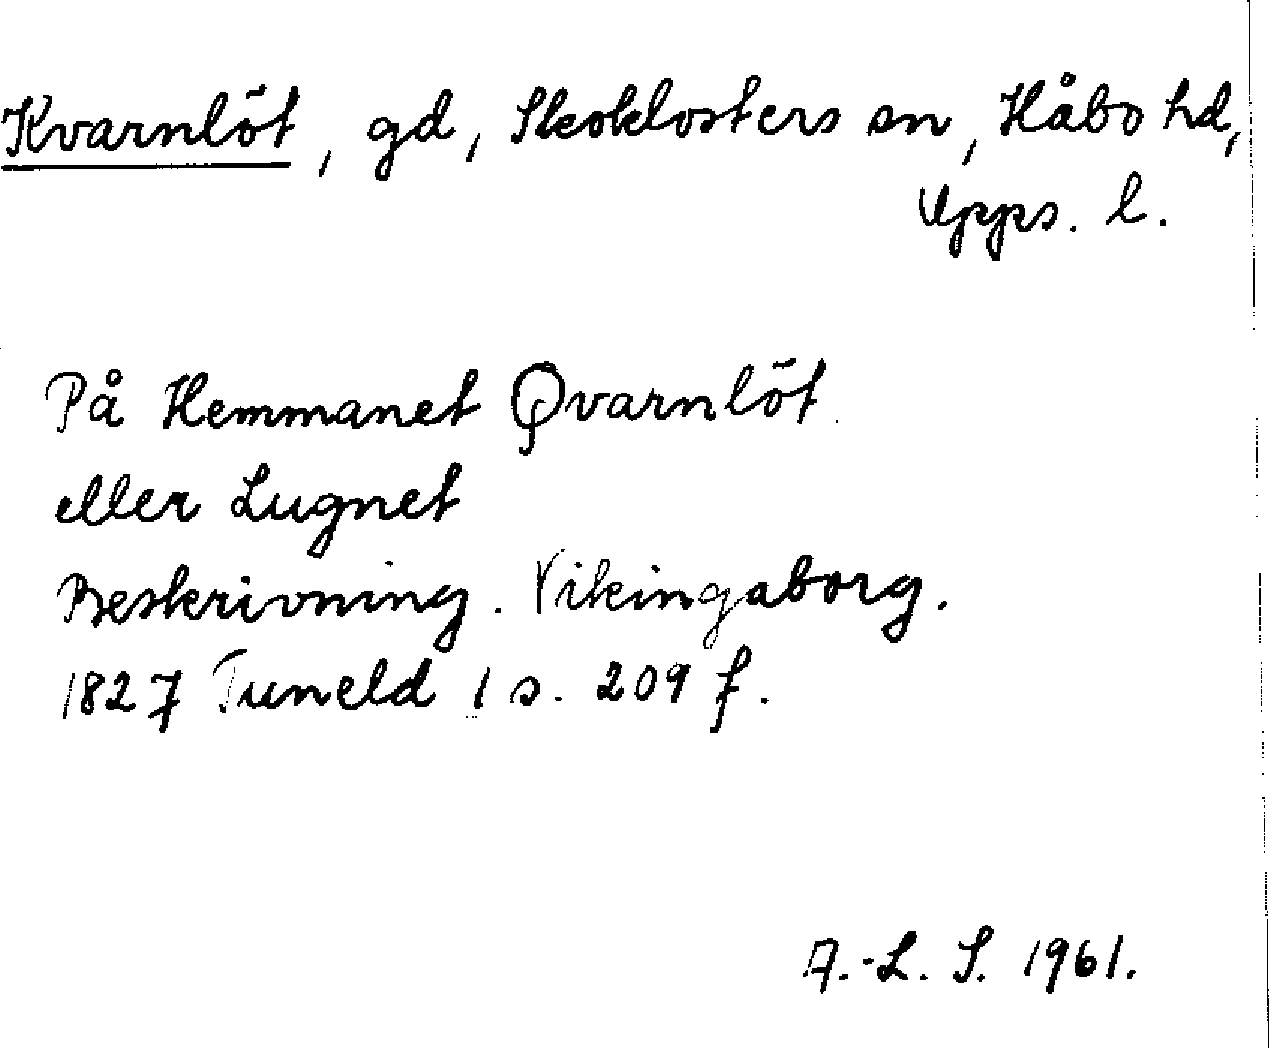 Kvarnlöt, gd, Skoklosters sn, Håbo hd,
Upps. l.
På Hemmanet Qvarnlöt
eller Lugnet
Beskrivning. Vikingaborg.
1827 Tuneld 1 s. 209 f.
A.-L. S. 1961.